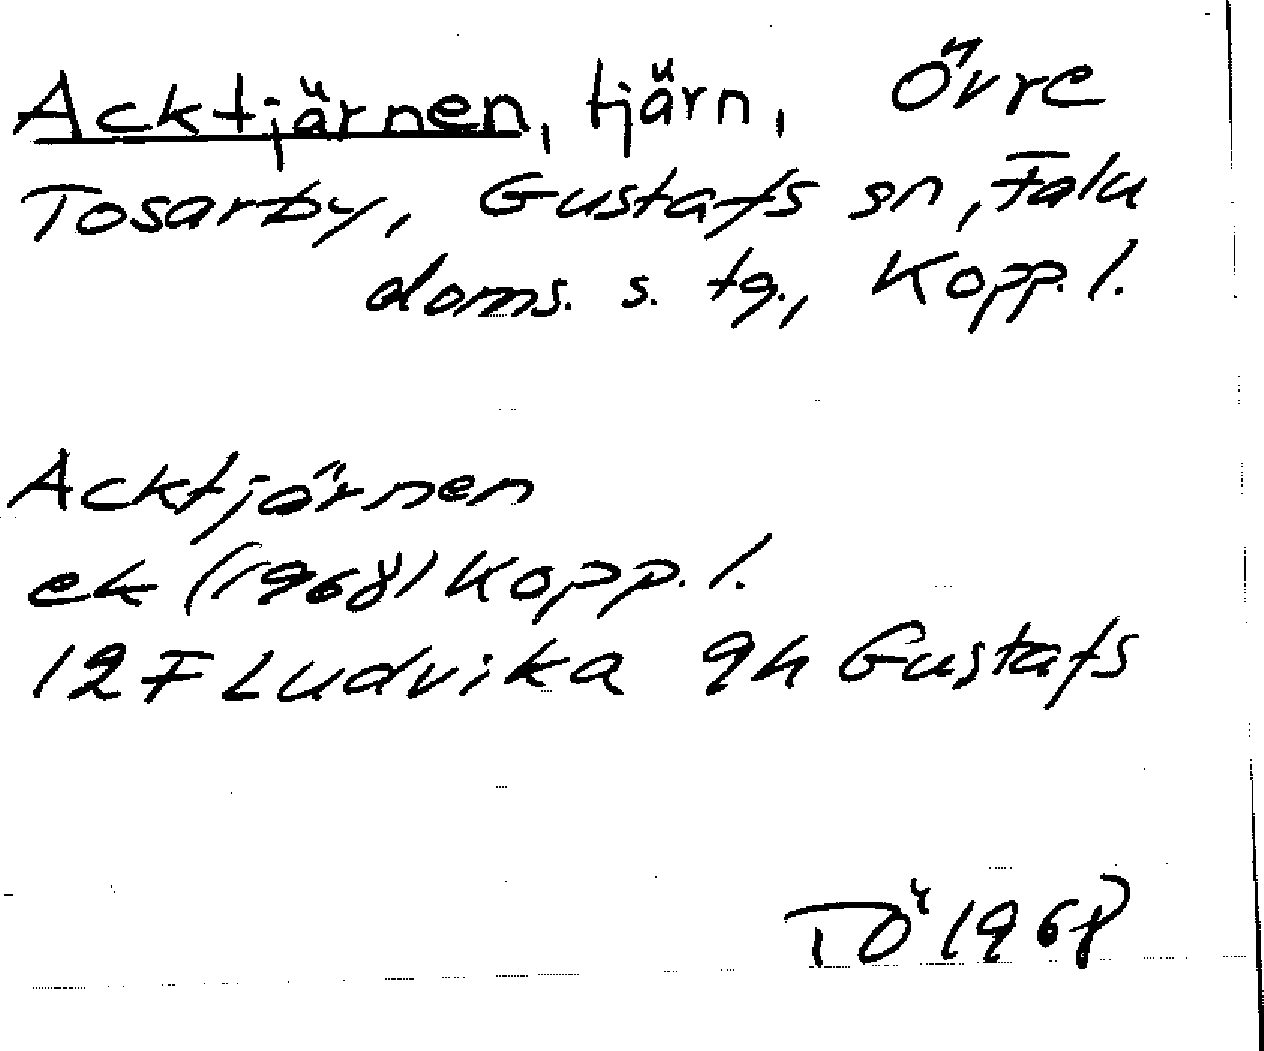 Acktjärnen, tjärn, Övre
Tosarby, Gustafs sn, Falu
doms. s. tg., Kopp. l.
Acktjärnen
ek (1968) Kopp. l.
12 F Ludvika 9h Gustafs
TÖ 1968